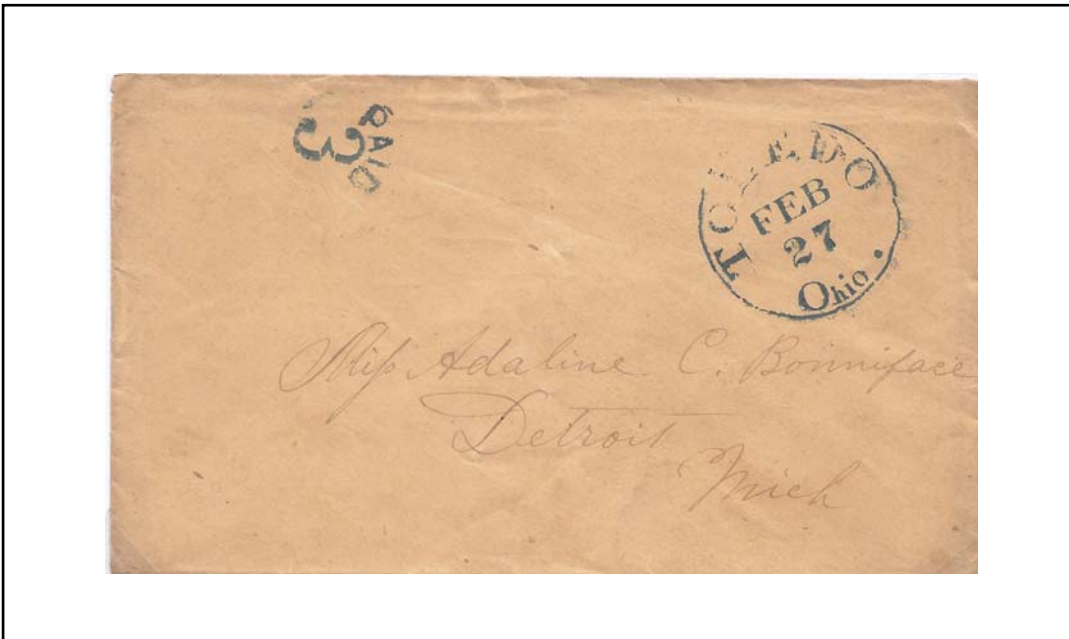 PAID
3
TOLEDO
FEB
27
Ohio.
Miss Adaline C. Bonniface
Detroit
Mich